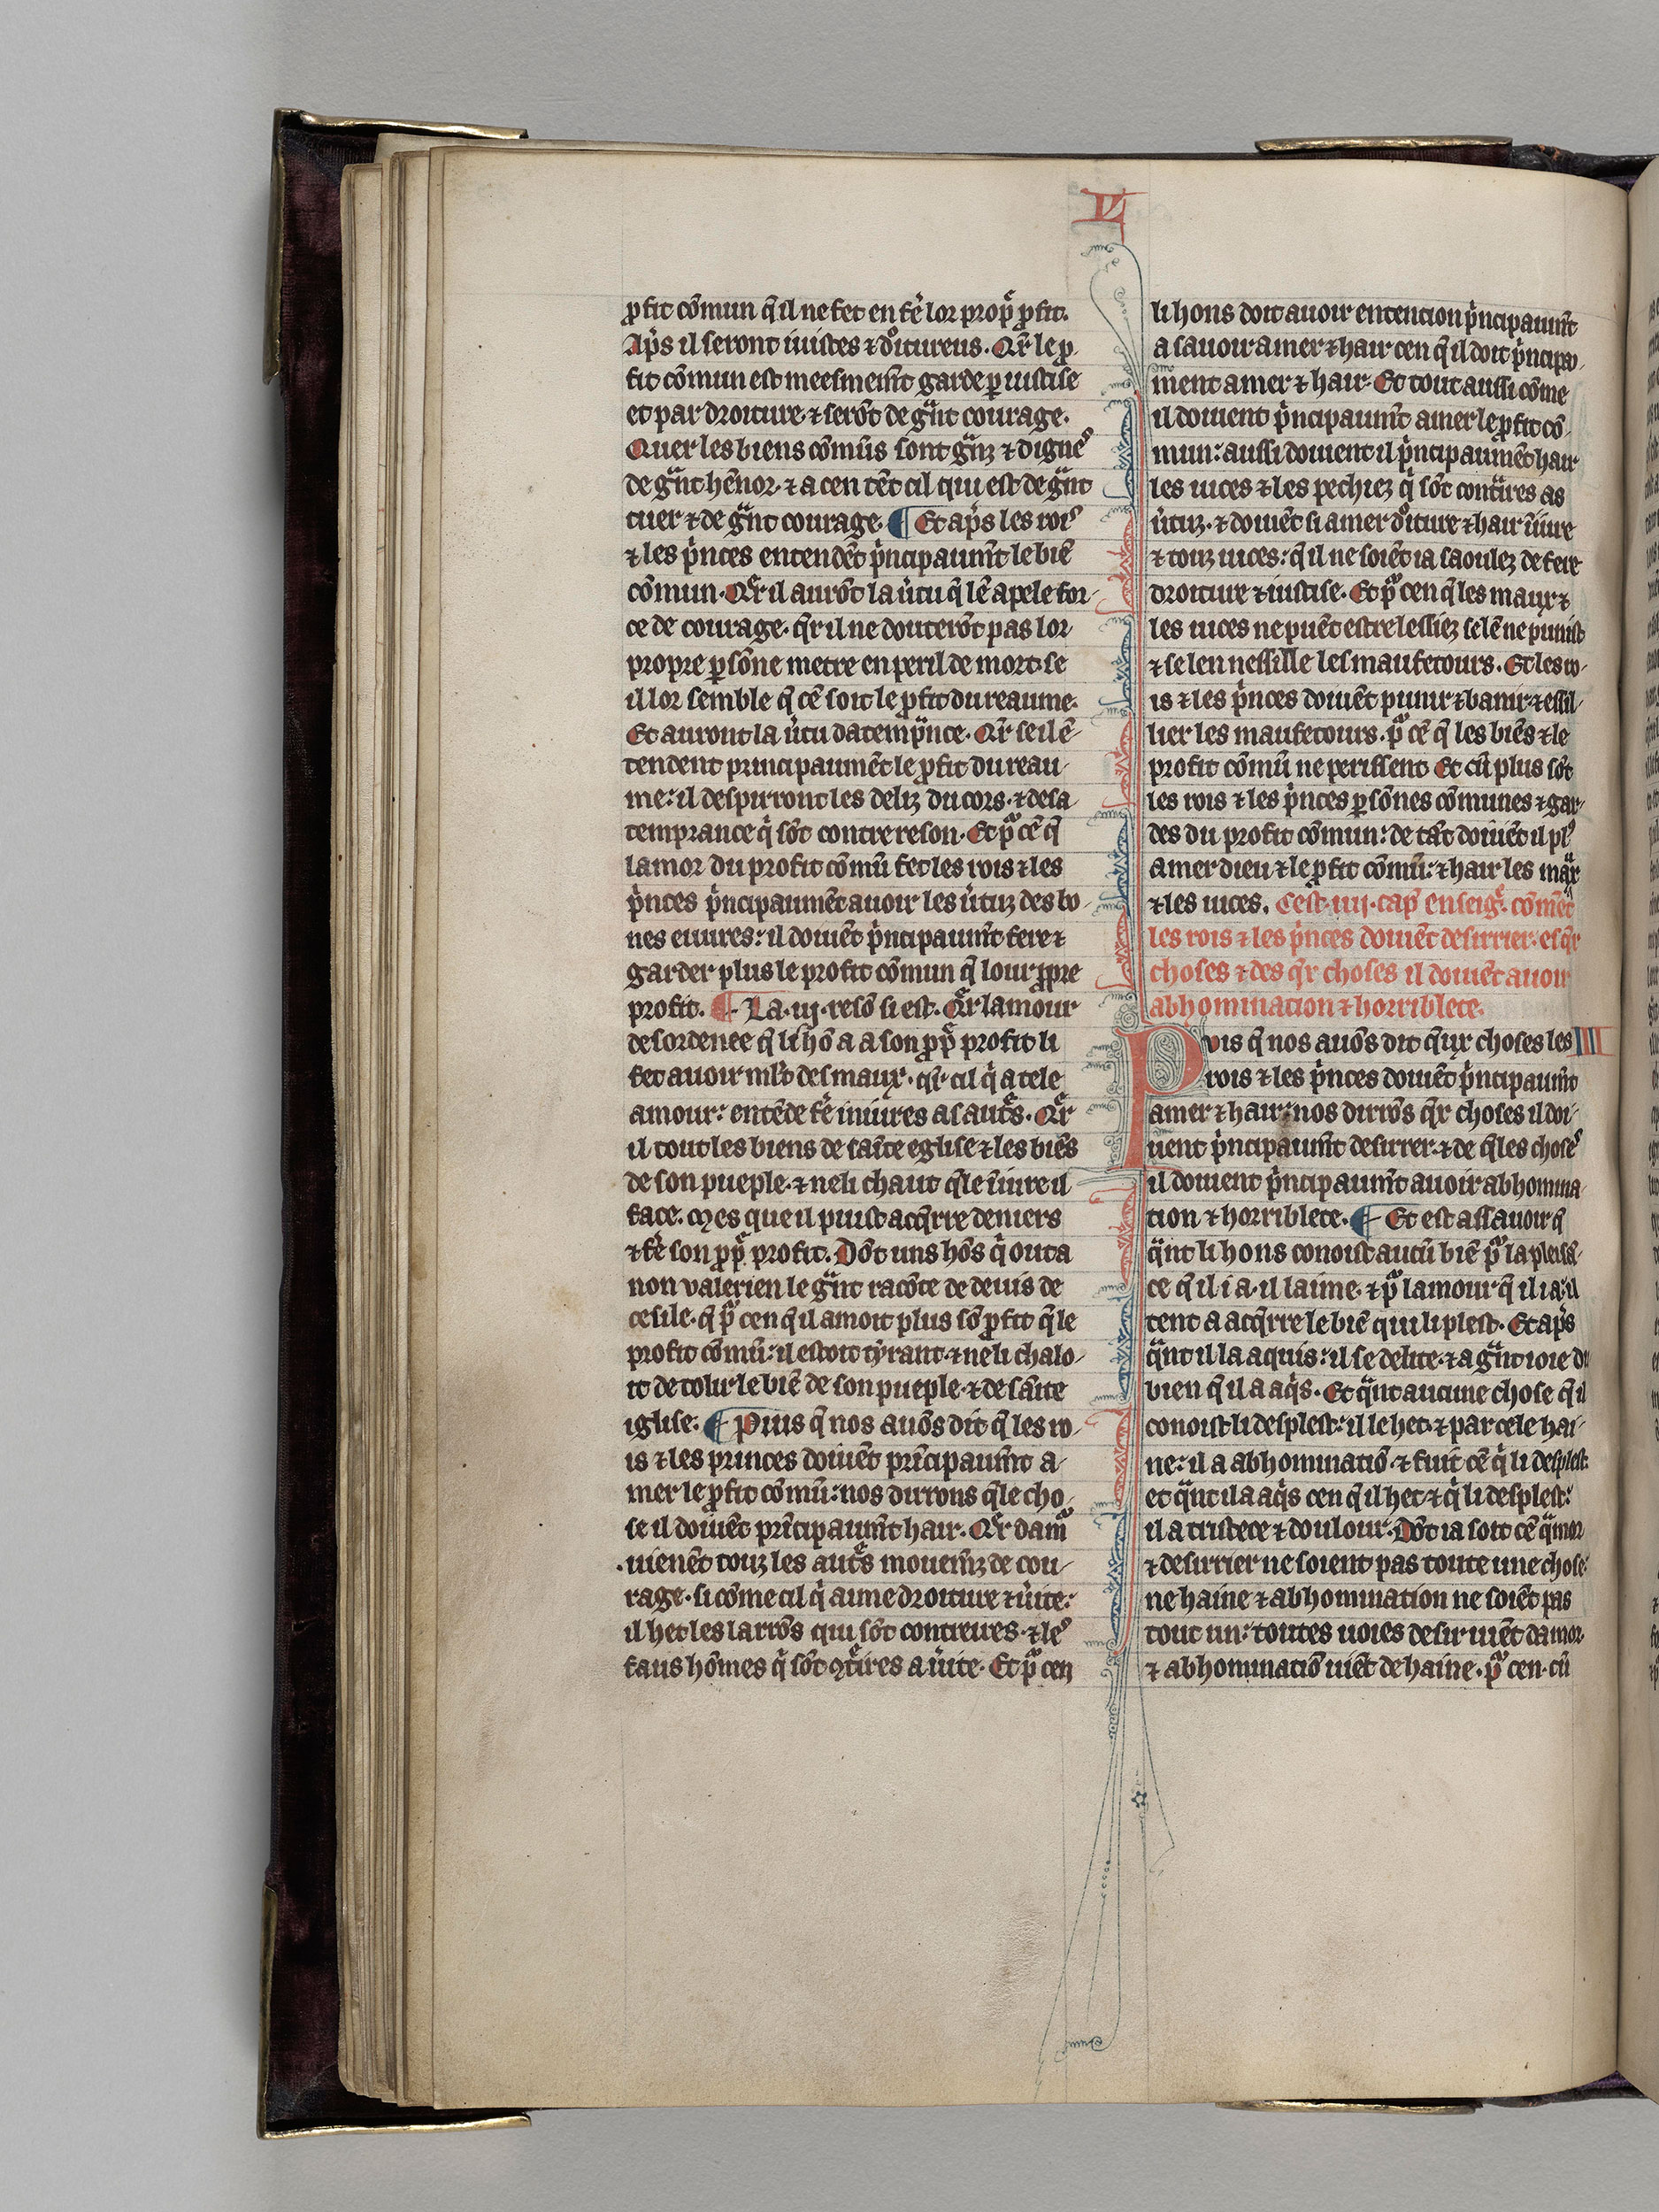 L
ꝓfit cõmun q̃ il ne fet en fẻ lor prop̾ ꝓfit.
Ap̾s il seront iuistes ⁊ doͥtureus. Qr̃ le ꝓ
fit cõmun est meesmem̃t garde ꝑ iustise
et par droiture ⁊ serõt de gñt courage.
Quer les biens cõmũs sont gñz ⁊ digneˢ
de gñt hẽnor. ⁊ a cen tẽt cil qui est de gñt
cuer ⁊ de gñt courage. ¶ Et ap̾s les roiˢ
⁊ les pͥnces entendẽt pͥncipaum̃t le biẽ
cõmun. Qr̃ il aurõt la u̾tu q̃ lẽ apele for-
ce de courage. qr̃ il ne douterõt pas lor
propre ꝑsõne metre en peril de mort. se
il lor semble q̃ cẽ soit le ꝓfit du reaume.
Et auront la u̾tu datemp̃nce. Qr̃ se il ẽ-
tendent principaumẽt le ꝓfit du reau-
me: il despirront les deliz du cors. ⁊ desa
temprance qͥ sõt contre reson. Et pͦ cẽ q̃
lamor du profit cõmũ fet les rois ⁊ les
pͥnces pͥncipaumẽt auoir les u̾tuz des bo-
nes euures: il doiuẽt pͥncipaum̃t fere ⁊
garder plus le profit cõmun q̃ lour ꝓpre
profit. ¶ La .iij. resõ si est. Qr̃ lamour
desordenee q̃ li hõ a a son ꝓp̾ profit li
fet auoir ml̃t des maux. qr̃ cil qͥ a tele
amour: entẽde fẻ iniures as aut̾s. Qr̃
il tout les biens de sãite eglise ⁊ les biẽs
de son pueple. ⁊ ne li chaut q̃le iniure il
face. Mes que il puist acq̃rre deniers
⁊ fẻ son ꝓp̾ profit. Dõt uns hõs qͥ out a
non valerien le gñt racõte de deuis de
cesile. q̃ pͦ cen q̃ il amoit plus sõ ꝓfit q̃ le
profit cõmũ: il estoit tyrant. ⁊ ne li chalo-
it de tolir le biẽ de son pueple. ⁊ de sãite
iglise. ¶ Puis q̃ nos auõs dit q̃ les ro-
is ⁊ les princes doiuẽt prĩcipaum̃t a-
mer le ꝓfit cõmũ: nos dirrons q̃le cho-
se il doiuẽt prĩcipaum̃t hair. Qr̃ damͦ
uienẽt touz les aut̾s mouem̃z de cou-
rage. si cõme cil qͥ aime droiture ⁊ u̾ite:
il het les larrõs qui sõt contreres. ⁊ leˢ
faus hõmes qͥ sõt ꝯt̾ires a u̾ite. Et pͦ cen
li hons doit auoir entencion pͥncipaum̃t
a sauoir amer ⁊ hair cen q̃ il doit pͥncipau-
ment amer ⁊ hair. Et tout aussi cõme
il doiuent pͥncipaum̃t amer le ꝓfit cõ-
mun: aussi doiuent il pͥncipaumẽt hair
les uices ⁊ les pechiez qͥ sõt contͣires as
u̾tuz. ⁊ doiuẽt si amer doͥture ⁊ hair iniure
⁊ touz uices: q̃ il ne soiẽt ia saoulez de fere
droiture ⁊ iustise. Et pͦ cen q̃ les maux ⁊
les uices ne puẽt estre lessiez se lẽ ne punist
⁊ se len nessille les maufetours. Et les ro-
is ⁊ les pͥnces doiuẽt punir ⁊ banir ⁊ essil-
lier les maufetours. pͦ cẽ q̃ les biẽs ⁊ le
profit cõmũ ne perissent Et cũ plus sõt
les rois ⁊ les pͥnces ꝑsõnes cõmunes ⁊ gar-
des du profit cõmun: de tãt doiuẽt il plˢ
amer dieu ⁊ le ꝓfit cõmũ: ⁊ hair les maͣx
⁊ les uices. Cest .iiij. cap̾ enseig̾. cõmẽt
les rois ⁊ les pͥnces doiuẽt desirrier. es qr̃
choses ⁊ des qr̃ choses il doiuẽt auoir
abhominacion ⁊ horriblete.
Puis q̃ nos auõs dit q̃ux choses les III
rois ⁊ les pͥnces doiuẽt pͥncipaum̃t
amer ⁊ hair: nos dirrõs qr̃ choses il doi-
uent pͥncipaum̃t desirrer. ⁊ de q̃les choseˢ
il doiuent pͥncipaum̃t auoir abhomina-
tion ⁊ horriblete. ¶ Et est assauoir q̃
qͣnt li hons conoist aucũ biẽ pͦ la pleisã-
ce q̃ il i a. il laime. ⁊ pͦ lamour q̃ il i a: il
tent a acq̃rre le biẽ qui li plest. Et ap̾s
qͣnt il la aquis: il se delite. ⁊ a gñt ioie du
bien q̃ il a aqͥs. Et qͣnt aucune chose q̃ il
conoist li desplest: il le het. ⁊ par cele hai-
ne: il a abhominatiõ ⁊ fuit cẽ qͥ li desplest
et qͣnt il a aqͥs cen q̃ il het. ⁊ qͥ li desplest:
il a tristece ⁊ doulour. Dõt ia soit cẽ q̃ amor
⁊ desirrier ne soient pas toute une chose:
ne haine ⁊ abhomination ne soiẽt pas
tout un: toutes uoies desir uiẽt damor.
⁊ abhominatiõ uiẽt de haine. pͦ cen. cũ